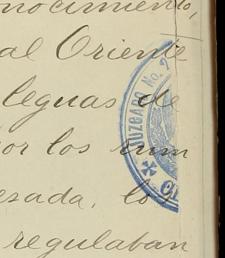 nocimiento,
al Oriente
leguas de
or los rum
esada, los
regulaban
JUZGADO No. 2